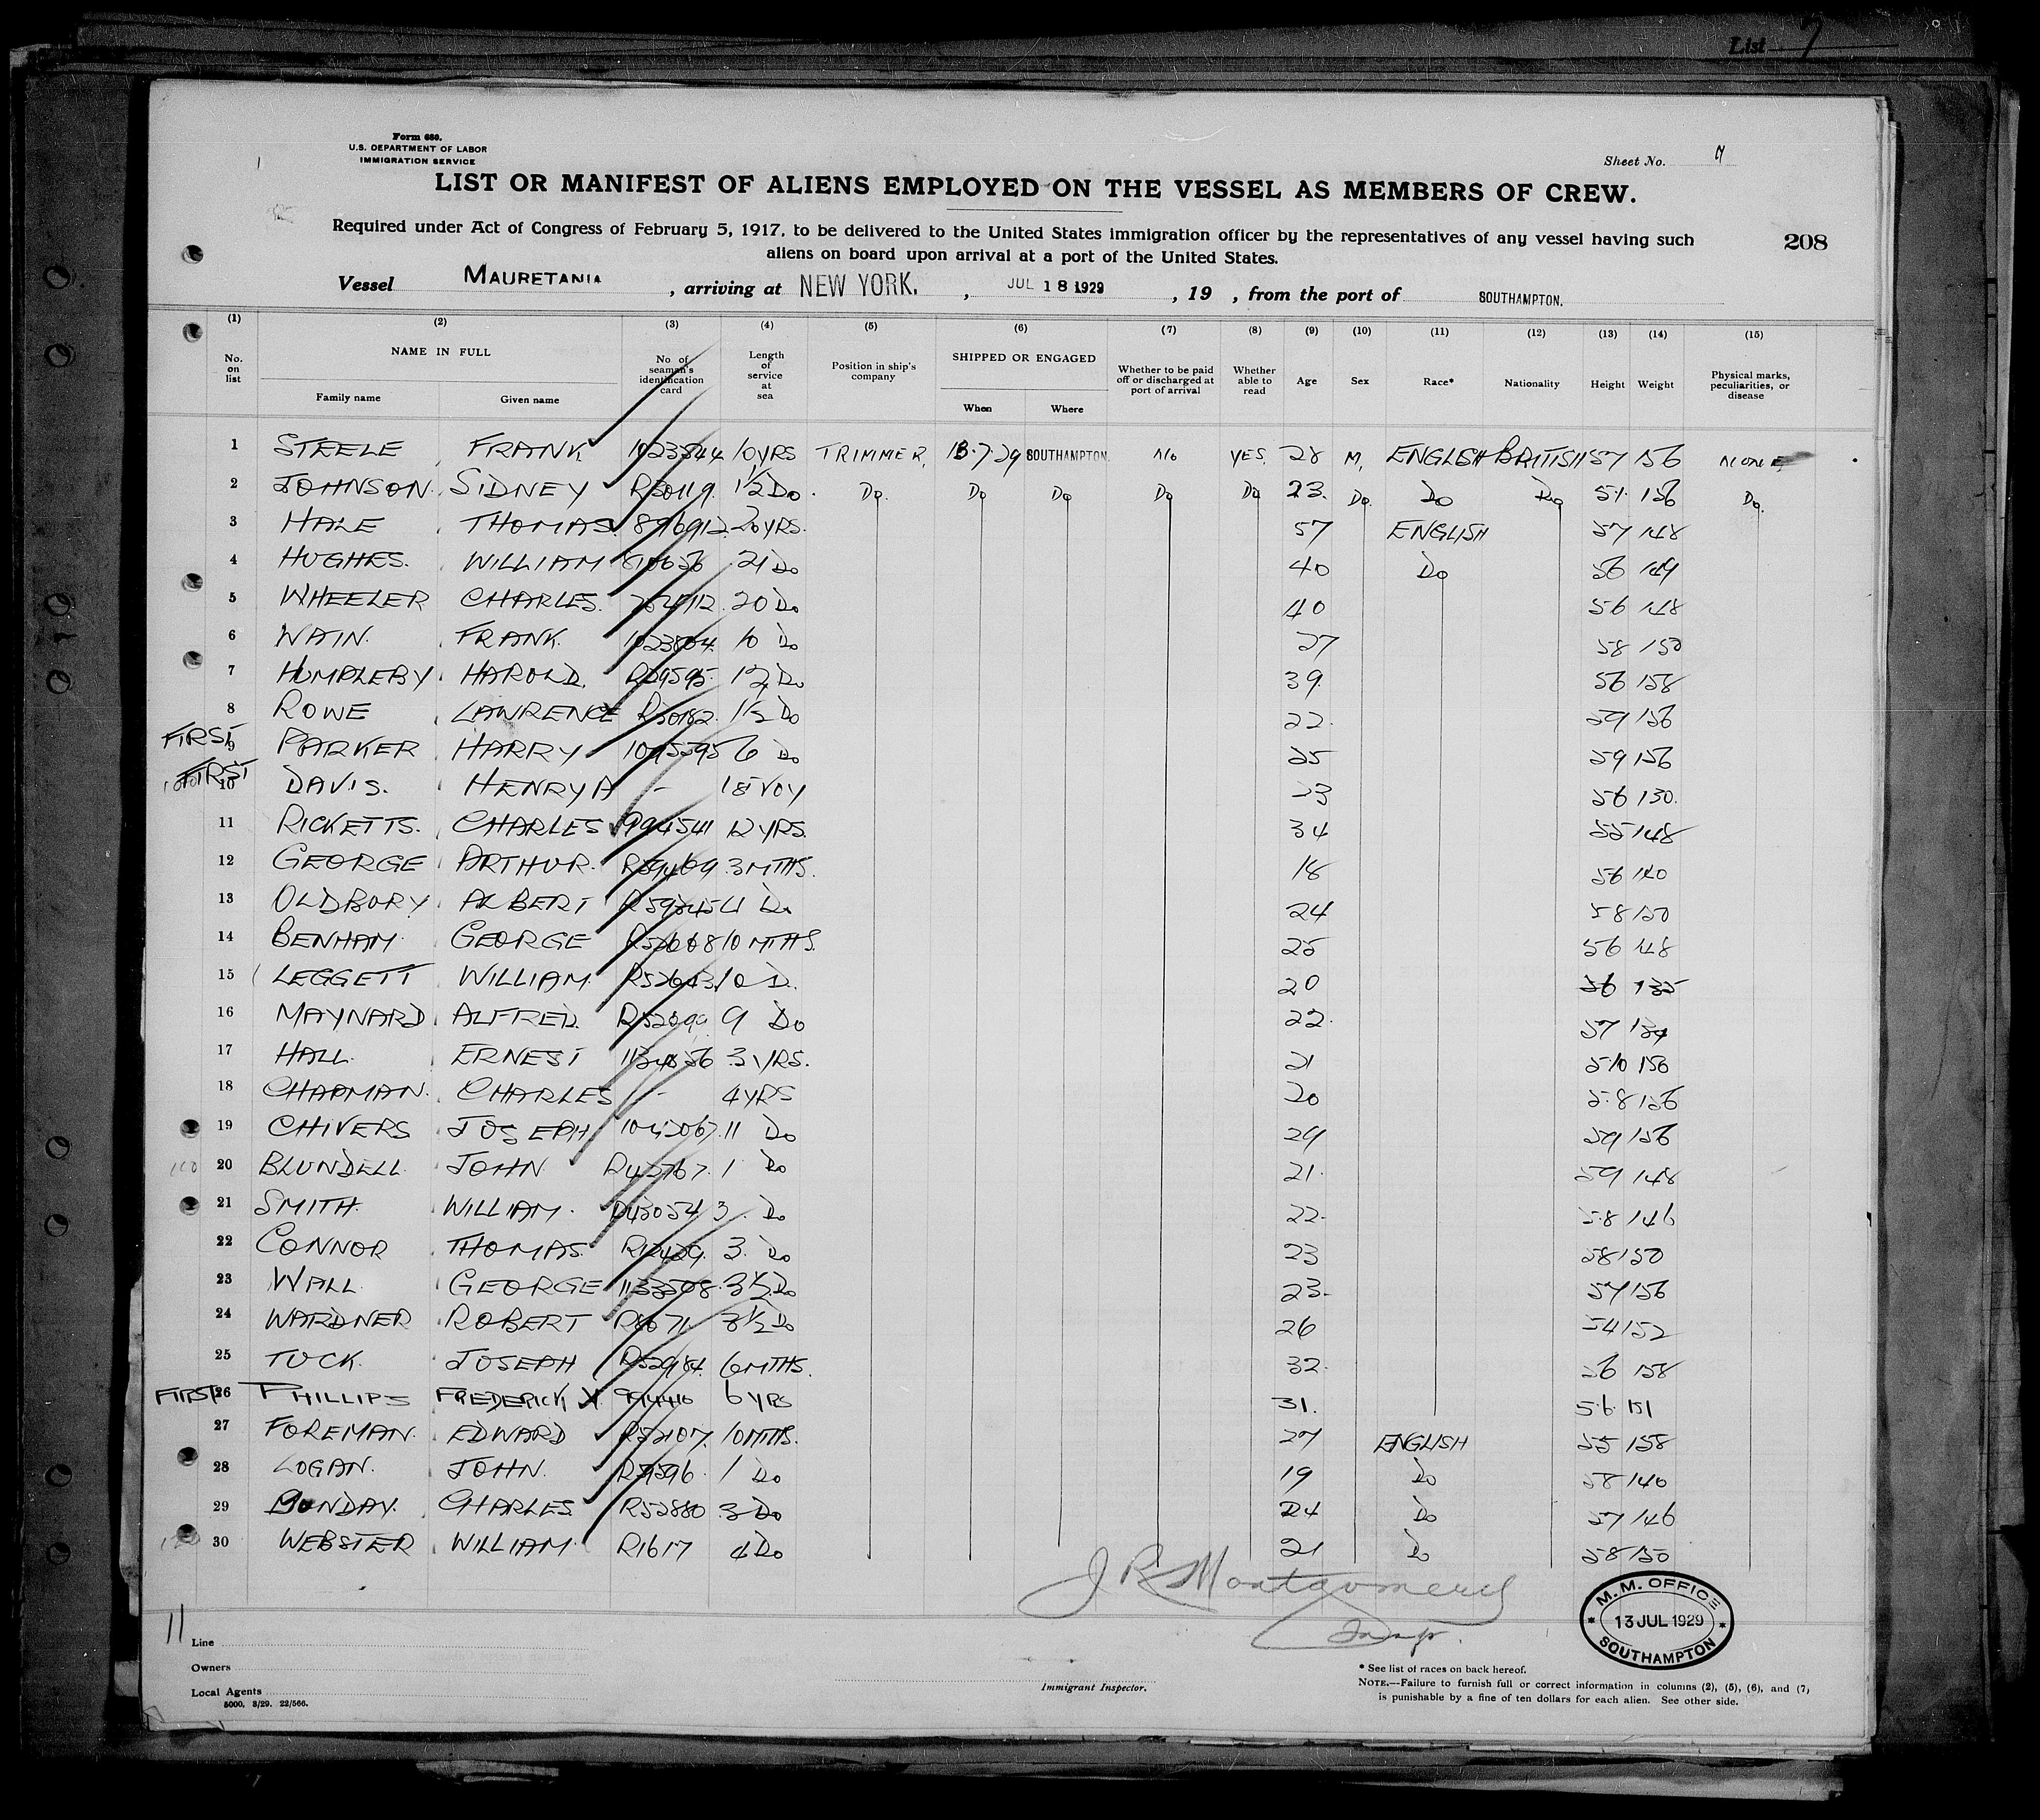 List 7
Form 680.
U.S. DEPARTMENT OF LABOR
IMMIGRATION SERVICE
Sheet No. 7
LIST OR MANIFEST OF ALIENS EMPLOYED ON THE VESSEL AS MEMBERS OF CREW.
Required under Act of Congress of February 5, 1917, to be delivered to the United States immigration officer by the representatives of any vessel having such
aliens on board upon arrival at a port of the United States.
208
Vessel MAURETANIA, arriving at NEW YORK., JUL 18 1929, 19 , from the port of SOUTHAMPTON.
(1) (2) (3) (4) (5) (6) (7) (8) (9) (10) (11) (12) (13) (14) (15)
No. on list NAME IN FULL Family name Given name No. of seaman's identification card Length of service at sea Position in ship's company SHIPPED OR ENGAGED When Where Whether to be paid off or discharged at port of arrival Whether able to read Age Sex Race* Nationality Height Weight Physical marks, peculiarities, or disease
1 STEELE FRANK 1023844 10 YRS TRIMMER. 13.7.29 SOUTHAMPTON. NO YES. 28 M. ENGLISH BRITISH 57 156 NONE
2 JOHNSON. SIDNEY R50119. 1½ Do. Do. Do Do Do Do 23. Do. Do Do 5/. 156 Do.
3 HALE THOMAS. 896912. 20 YRS. 57 ENGLISH 57 148
4 HUGHES. WILLIAM 21 Do 40 Do 56 149
5 WHEELER CHARLES. 20 Do 40 56 148
6 WAIN. FRANK. 1023804. 10 Do 27 58 150
7 HUMPLEBY. HAROLD. R59595 1½ Do 39. 56 158
8 ROWE LAWRENCE R50182. 1½ Do 22. 59 156
FIRST 9 PARKER HARRY 1095595 6 Do 25 59 156
FIRST 10 DAVIS. HENRY A - 18 VOY 23 56 130.
11 RICKETTS. CHARLES 994541 12 YRS. 34 55 148
12 GEORGE ARTHUR. R59469 3 MTHS. 18 56 140
13 OLDBURY. ALBERT R59345 4 Do 24 58 150
14 BENHAM. GEORGE R52668 10 MTHS. 25 56 148
15 LEGGETT WILLIAM. R52643 10 D. 20 56 135
16 MAYNARD. ALFRED. 9 Do 22. 57
17 HALL. ERNEST 1134856 3 YRS. 21 5.10 156
18 CHAPMAN. CHARLES - 4 YRS 20 5.8 156
19 CHIVERS JOSEPH 1043067. 11 Do 29 59 156
20 BLUNDELL JOHN R42767. 1 Do 21. 59 148
21 SMITH. WILLIAM. R43054 3. Do 22. 5.8 146
22 CONNOR THOMAS. R12429. 3. Do 23 58 150
23 WALL. GEORGE 1133508. 3½ Do 23. 57 156
24 WARDNER ROBERT R8671. 3½ Do 26 54 152
25 TUCK. JOSEPH R52984. 6 MTHS. 32. 56 158
FIRST 26 PHILLIPS FREDERICK X. 994410 6 YRS 31. 5.6. 151
27 FOREMAN. EDWARD R52107. 10 MTHS. 27 ENGLISH 55 158
28 LOGAN. JOHN. R59596. 1 Do 19 Do 58 140
29 BUNDAY. CHARLES R52880 3 Do 24 Do 57 146
30 WEBSTER WILLIAM. R1617 4 Do 21 Do 58 150
J R Montgomery
Insp.
M.M. OFFICE
13 JUL 1929
SOUTHAMPTON
11
Line
Owners
Local Agents
5000. 3/29. 22/566.
Immigrant Inspector.
* See list of races on back hereof.
NOTE.—Failure to furnish full or correct information in columns (2), (5), (6), and (7)
is punishable by a fine of ten dollars for each alien. See other side.